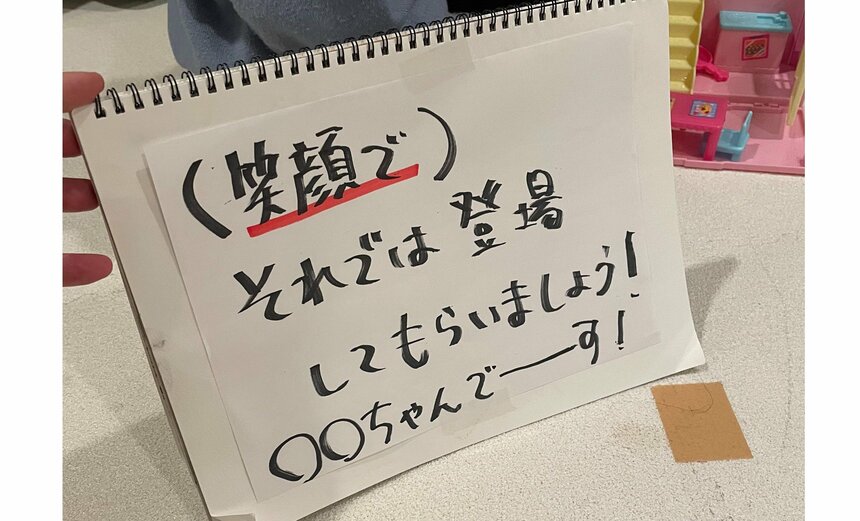 (笑顔で)
それでは登場
してもらいましょう!
〇〇ちゃんでーーす!